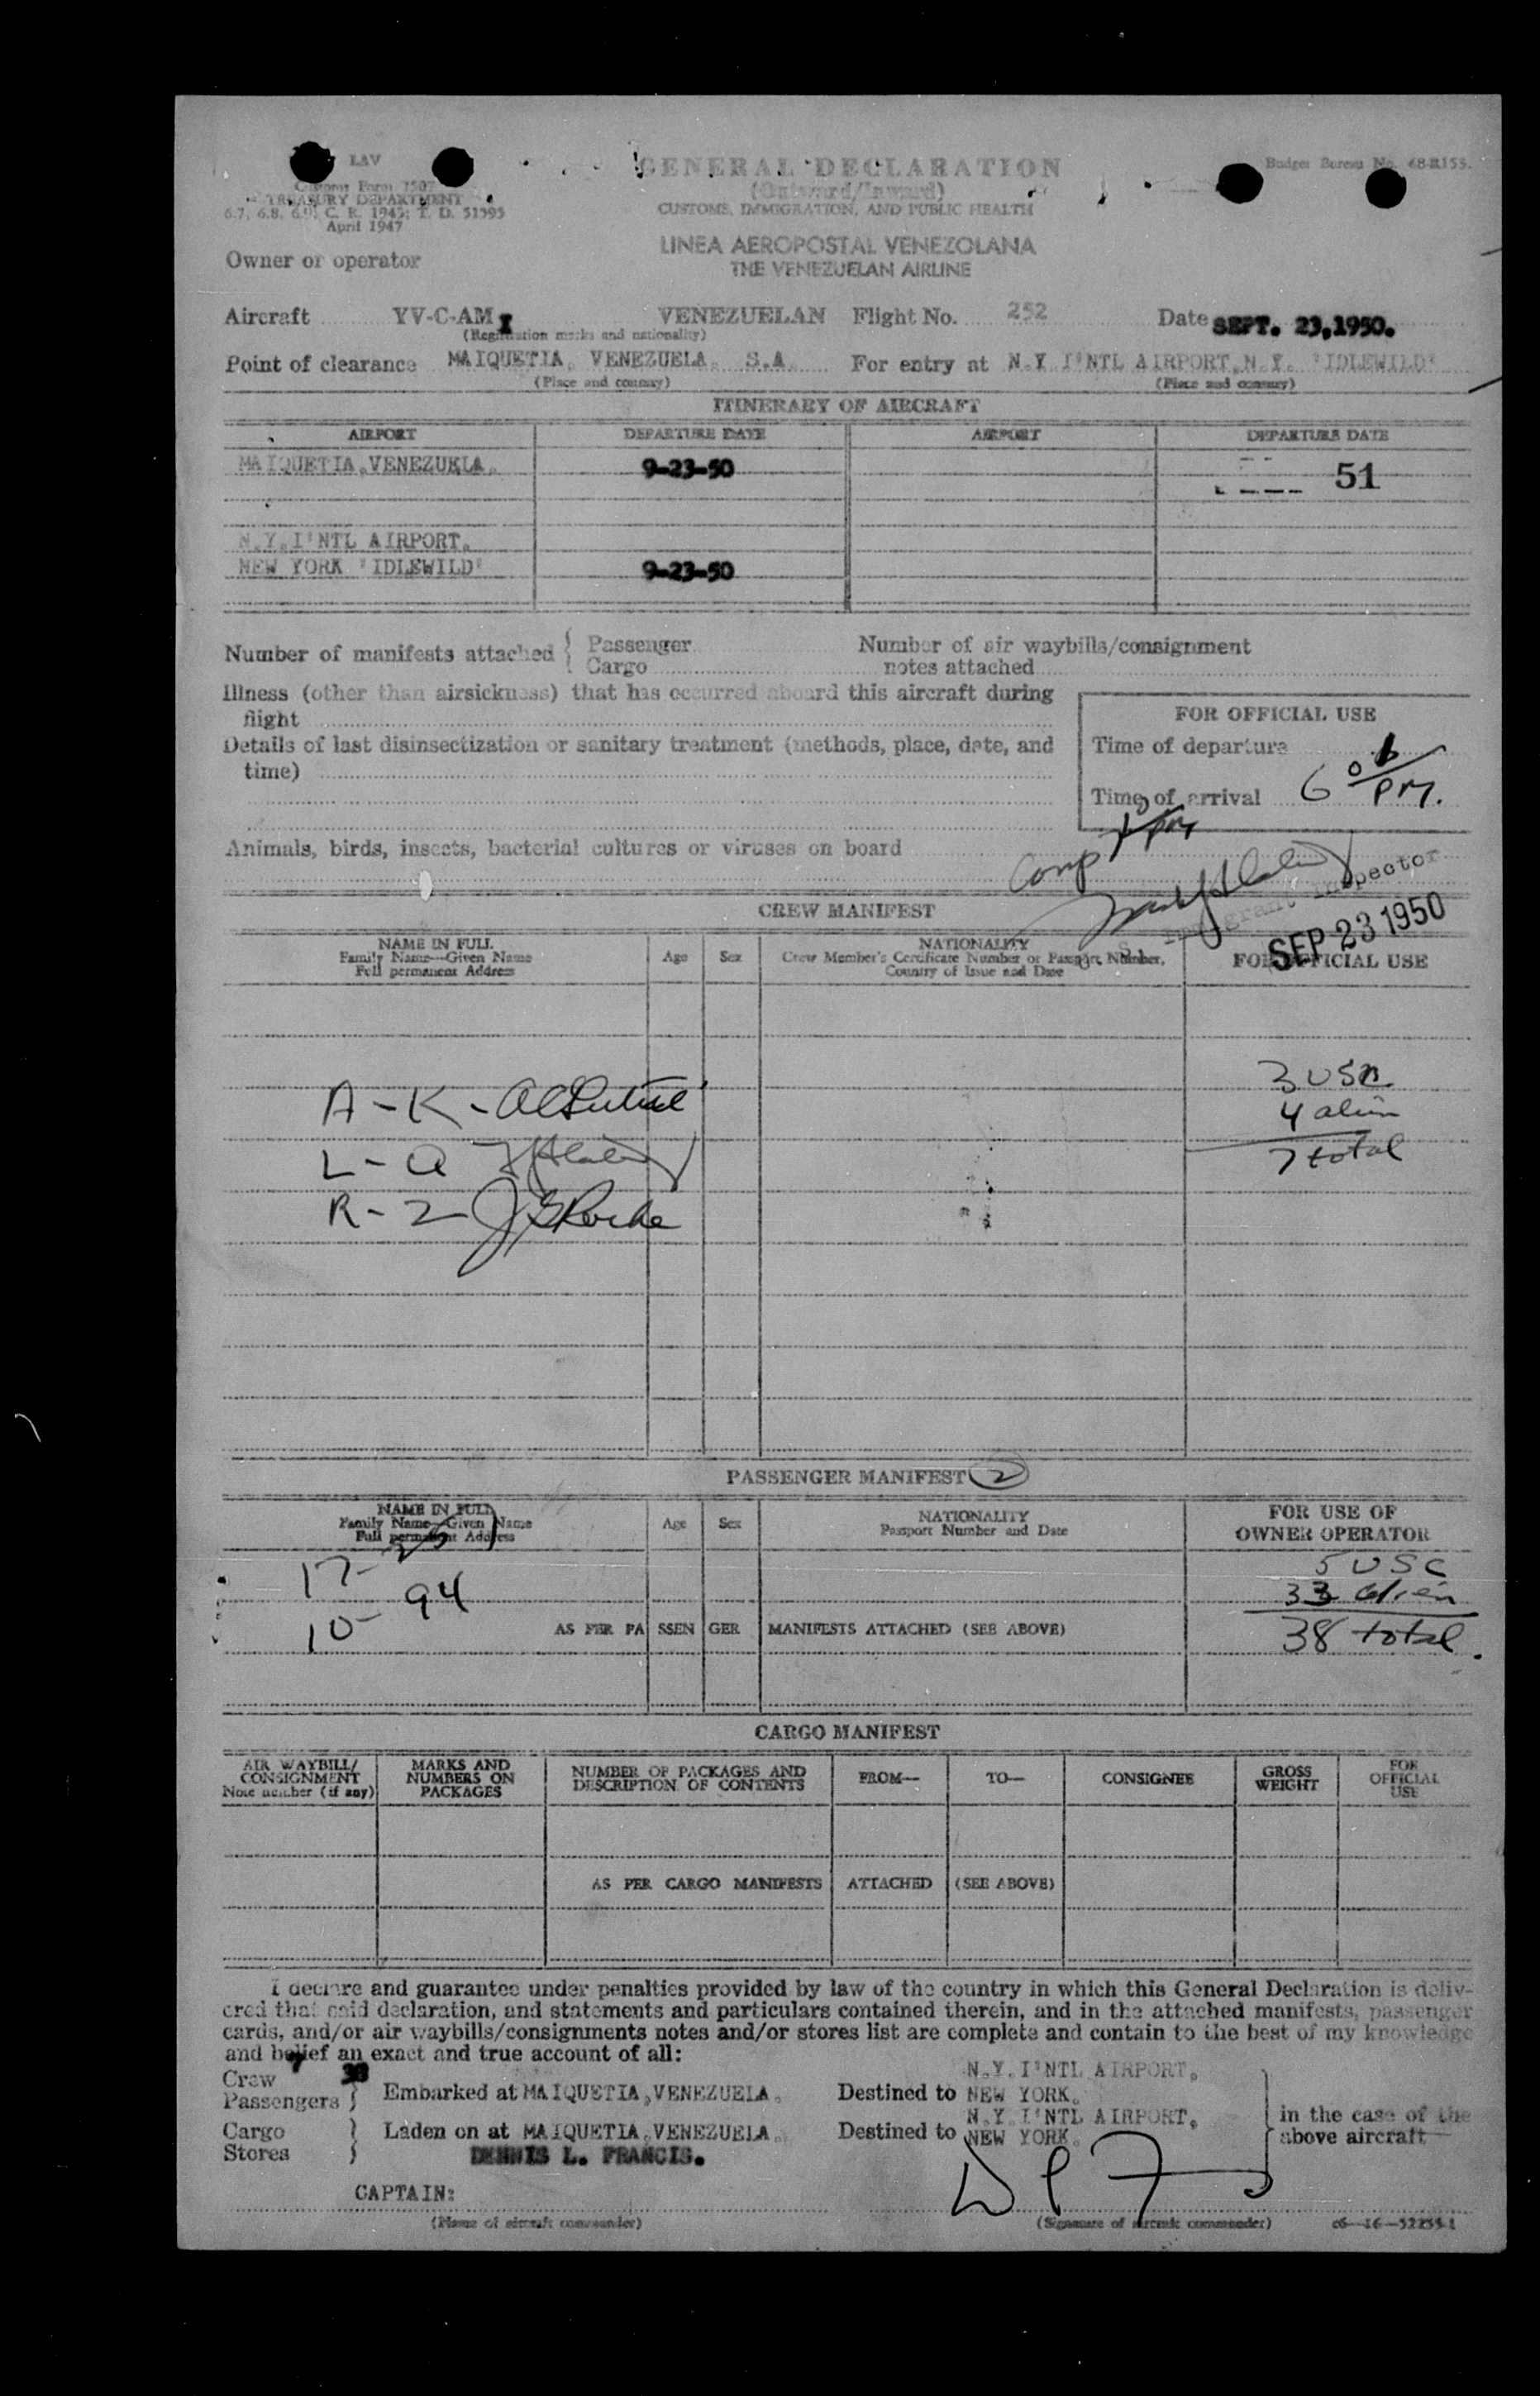 LAV
Customs Form 7507
TREASURY DEPARTMENT
6.7, 6.8, 6.9, C. R. 1943; T. D. 51595
April 1947
GENERAL DECLARATION
(Outward/Inward)
CUSTOMS, IMMIGRATION, AND PUBLIC HEALTH
Budget Bureau No. 48-R155.
LINEA AEROPOSTAL VENEZOLANA
THE VENEZUELAN AIRLINE
Owner or operator
Aircraft YV-C-AMI VENEZUELAN Flight No. 252 Date SEPT. 23,1950.
(Registration marks and nationality)
Point of clearance MAIQUETIA, VENEZUELA, S.A. For entry at N.Y I'NTL AIRPORT,N.Y. 'IDLEWILD'
(Place and country) (Place and country)
ITINERARY OF AIRCRAFT
AIRPORT DEPARTURE DATE AIRPORT DEPARTURE DATE
MAIQUETIA,VENEZUELA. 9-23-50 51
N.Y.I'NTL AIRPORT,
NEW YORK 'IDLEWILD' 9-23-50
Number of manifests attached { Passenger
Cargo
Number of air waybills/consignment
notes attached
Illness (other than airsickness) that has occurred aboard this aircraft during
flight
Details of last disinsectization or sanitary treatment (methods, place, date, and
time)
FOR OFFICIAL USE
Time of departure
Time of arrival 6 PM.
Animals, birds, insects, bacterial cultures or viruses on board
Comp
Immigrant Inspector
SEP 23 1950
CREW MANIFEST
NAME IN FULL
Family Name—Given Name
Full permanent Address
Age Sex
NATIONALITY
Crew Member's Certificate Number or Passport Number,
Country of Issue and Date
FOR OFFICIAL USE
3 USC
4 alien
7 total
A - K -
L - Q
R - Z
PASSENGER MANIFEST 2
NAME IN FULL
Family Name—Given Name
Full permanent Address
Age Sex
NATIONALITY
Passport Number and Date
FOR USE OF
OWNER OPERATOR
17-
10- 94
5 USC
33 alien
38 total
AS PER PASSENGER MANIFESTS ATTACHED (SEE ABOVE)
CARGO MANIFEST
AIR WAYBILL/
CONSIGNMENT
Note number (if any)
MARKS AND
NUMBERS ON
PACKAGES
NUMBER OF PACKAGES AND
DESCRIPTION OF CONTENTS
FROM— TO— CONSIGNEE
GROSS
WEIGHT
FOR
OFFICIAL
USE
AS PER CARGO MANIFESTS ATTACHED (SEE ABOVE)
I declare and guarantee under penalties provided by law of the country in which this General Declaration is deliv-
ered that said declaration, and statements and particulars contained therein, and in the attached manifests, passenger
cards, and/or air waybills/consignments notes and/or stores list are complete and contain to the best of my knowledge
and belief an exact and true account of all:
Crew 7
Passengers 38 } Embarked at MAIQUETIA,VENEZUELA. Destined to N.Y.I'NTL AIRPORT, NEW YORK.
Cargo
Stores } Laden on at MAIQUETIA,VENEZUELA. Destined to N.Y.I'NTL AIRPORT, NEW YORK.
in the case of the
above aircraft
DENNIS L. FRANCIS.
CAPTAIN:
(Name of aircraft commander) (Signature of aircraft commander) c6—16—52255-1